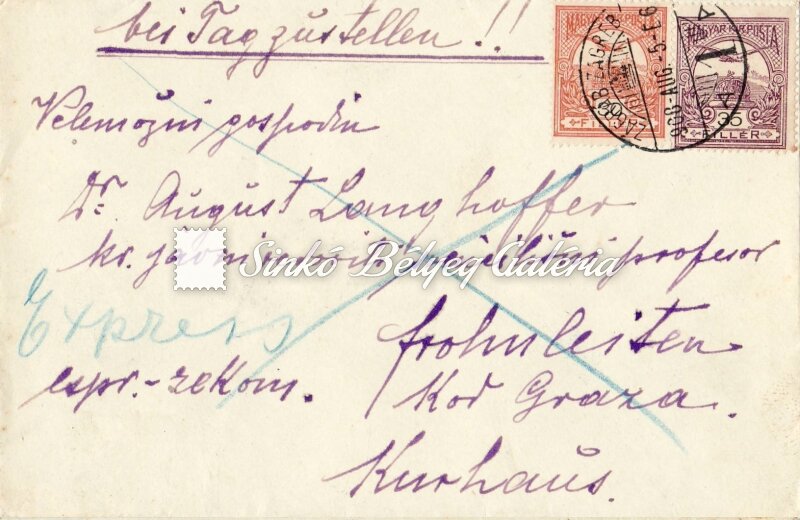 bei Tag zustellen!!
MAGYAR KIR. POSTA
MAGYAR KIR. POSTA
ZAGREB ZAGREB
908-AUG. 5-
35
FILLÉR
Velemožni gospodin
Dr. August Langhoffer
kr. javni sveučilišni profesor
Sinkó Bélyeg Galéria
Express
frohnleiten
espr.-rekom.
Kod Graza.
Kurhaus.